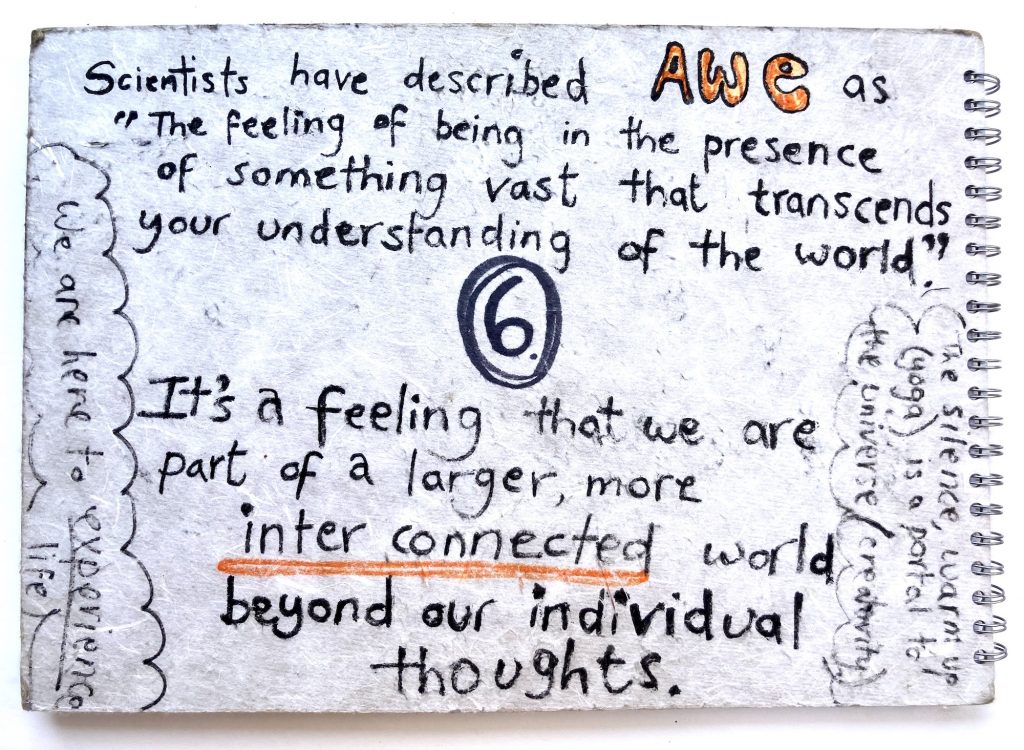 Scientists have described AWE as
"The feeling of being in the presence
of something vast that transcends
your understanding of the world".
6.
It's a feeling that we are
part of a larger, more
inter connected world
beyond our individual
thoughts.
We are here to experience
life
The silence, warm up
(yoga) is a portal to
the universe (creativity)